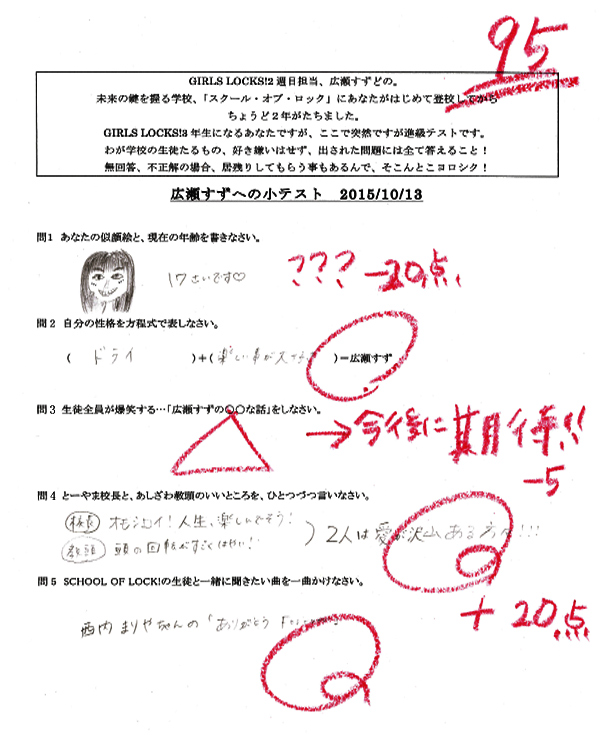 95
GIRLS LOCKS!2 週目担当、広瀬すずどの。
未来の鍵を握る学校、「スクール・オブ・ロック」にあなたがはじめて登校してから
ちょうど2年がたちました。
GIRLS LOCKS!3 年生になるあなたですが、ここで突然ですが進級テストです。
わが学校の生徒たるもの、好き嫌いはせず、出された問題には全て答えること!
無回答、不正解の場合、居残りしてもらう事もあるんで、そこんとこヨロシク!
広瀬すずへの小テスト 2015/10/13
問1 あなたの似顔絵と、現在の年齢を書きなさい。
17さいです♡
??? -20点
問2 自分の性格を方程式で表しなさい。
( ドライ )+(楽しい事が大 )=広瀬すず
問3 生徒全員が爆笑する…「広瀬すずの○○な話」をしなさい。
→今後に期待!!
-5
問4 とーやま校長と、あしざわ教頭のいいところを、ひとつづつ言いなさい。
校長 オモシロイ!人生、楽しんでそう!
教頭 頭の回転がすごくはやい!
2人は愛が沢山ある方々!!!
問5 SCHOOL OF LOCK!の生徒と一緒に聞きたい曲を一曲かけなさい。
+20点
西内まりやちゃんの「ありがとう